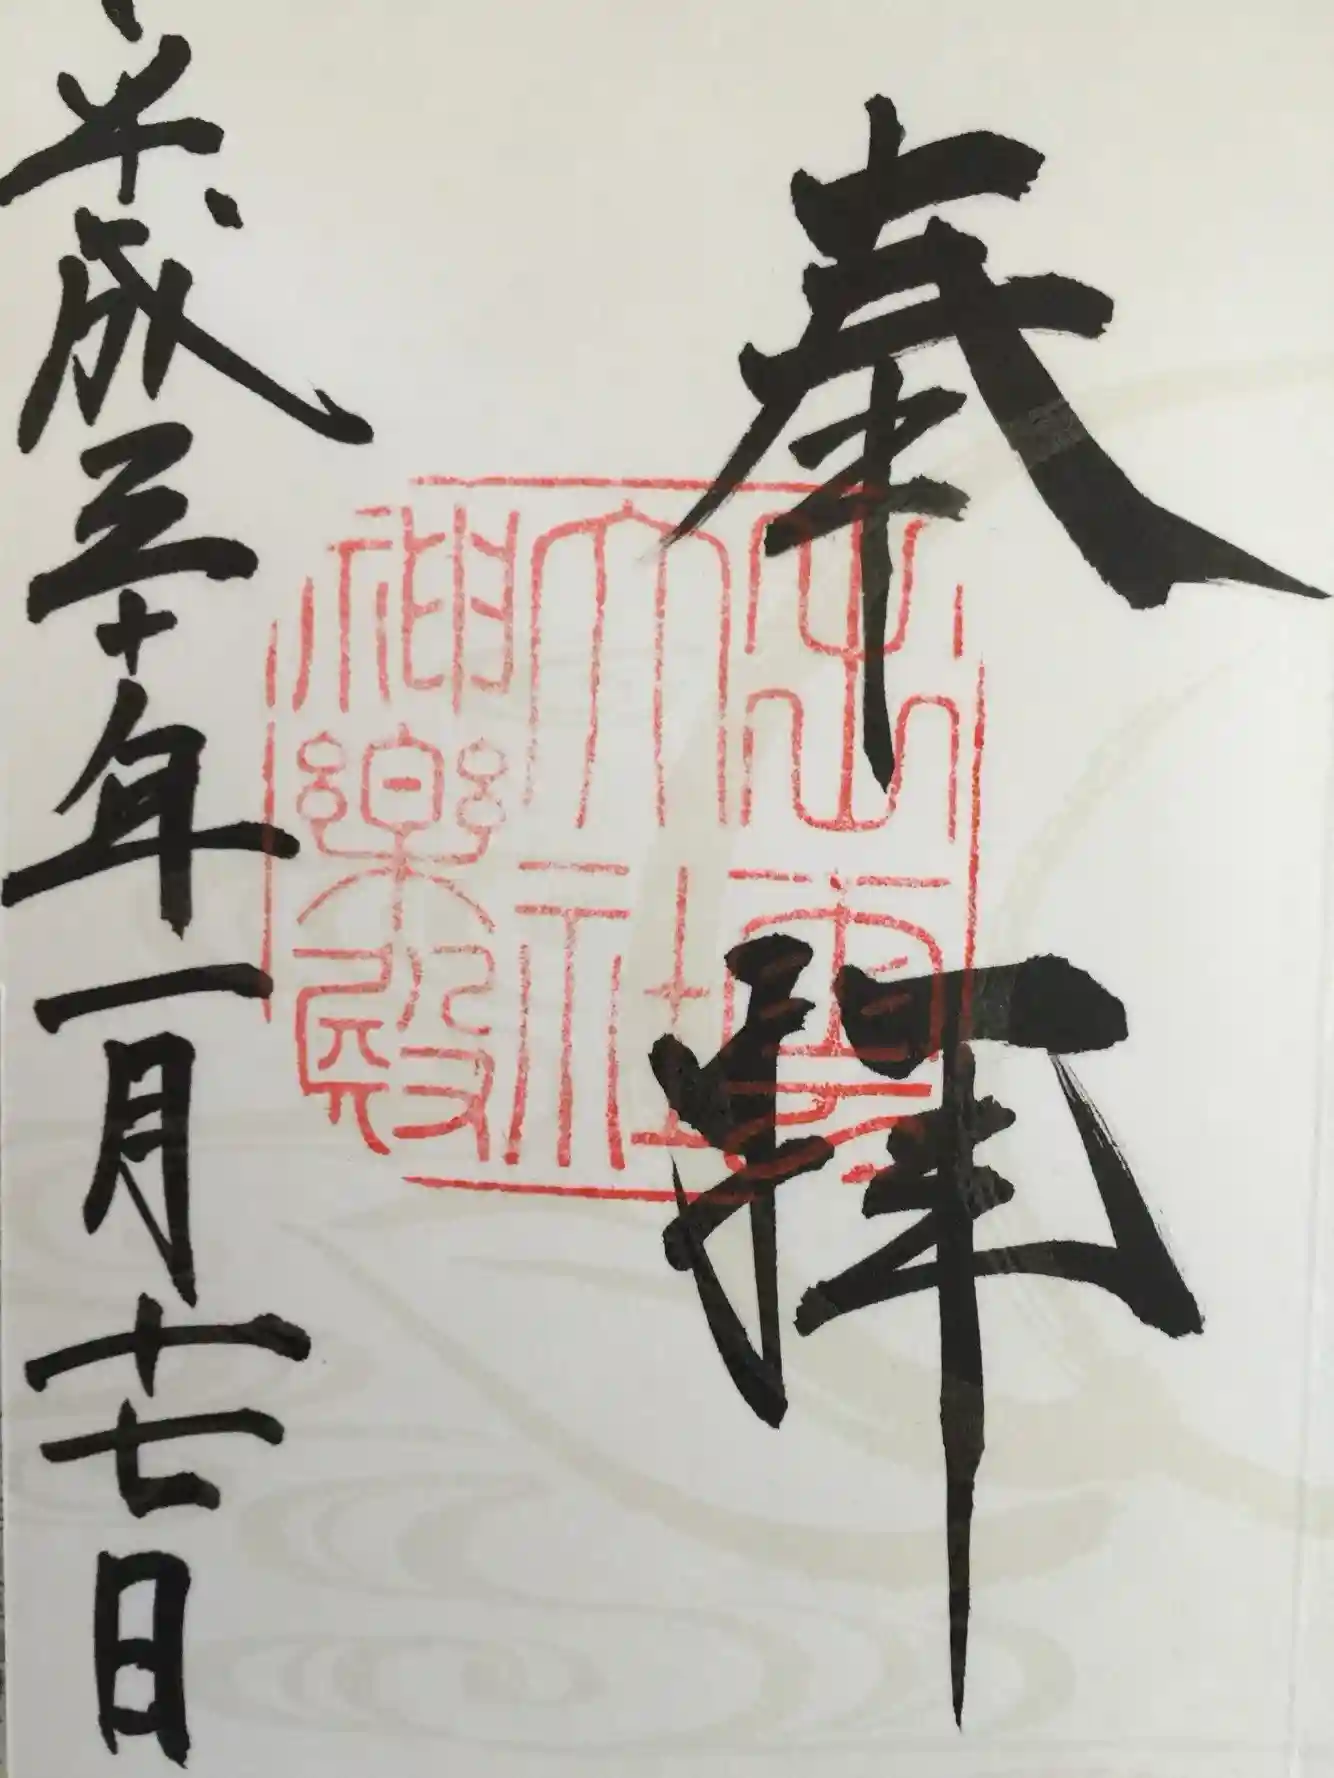 奉拝
出雲
大社
神楽殿
平成三十年一月十七日